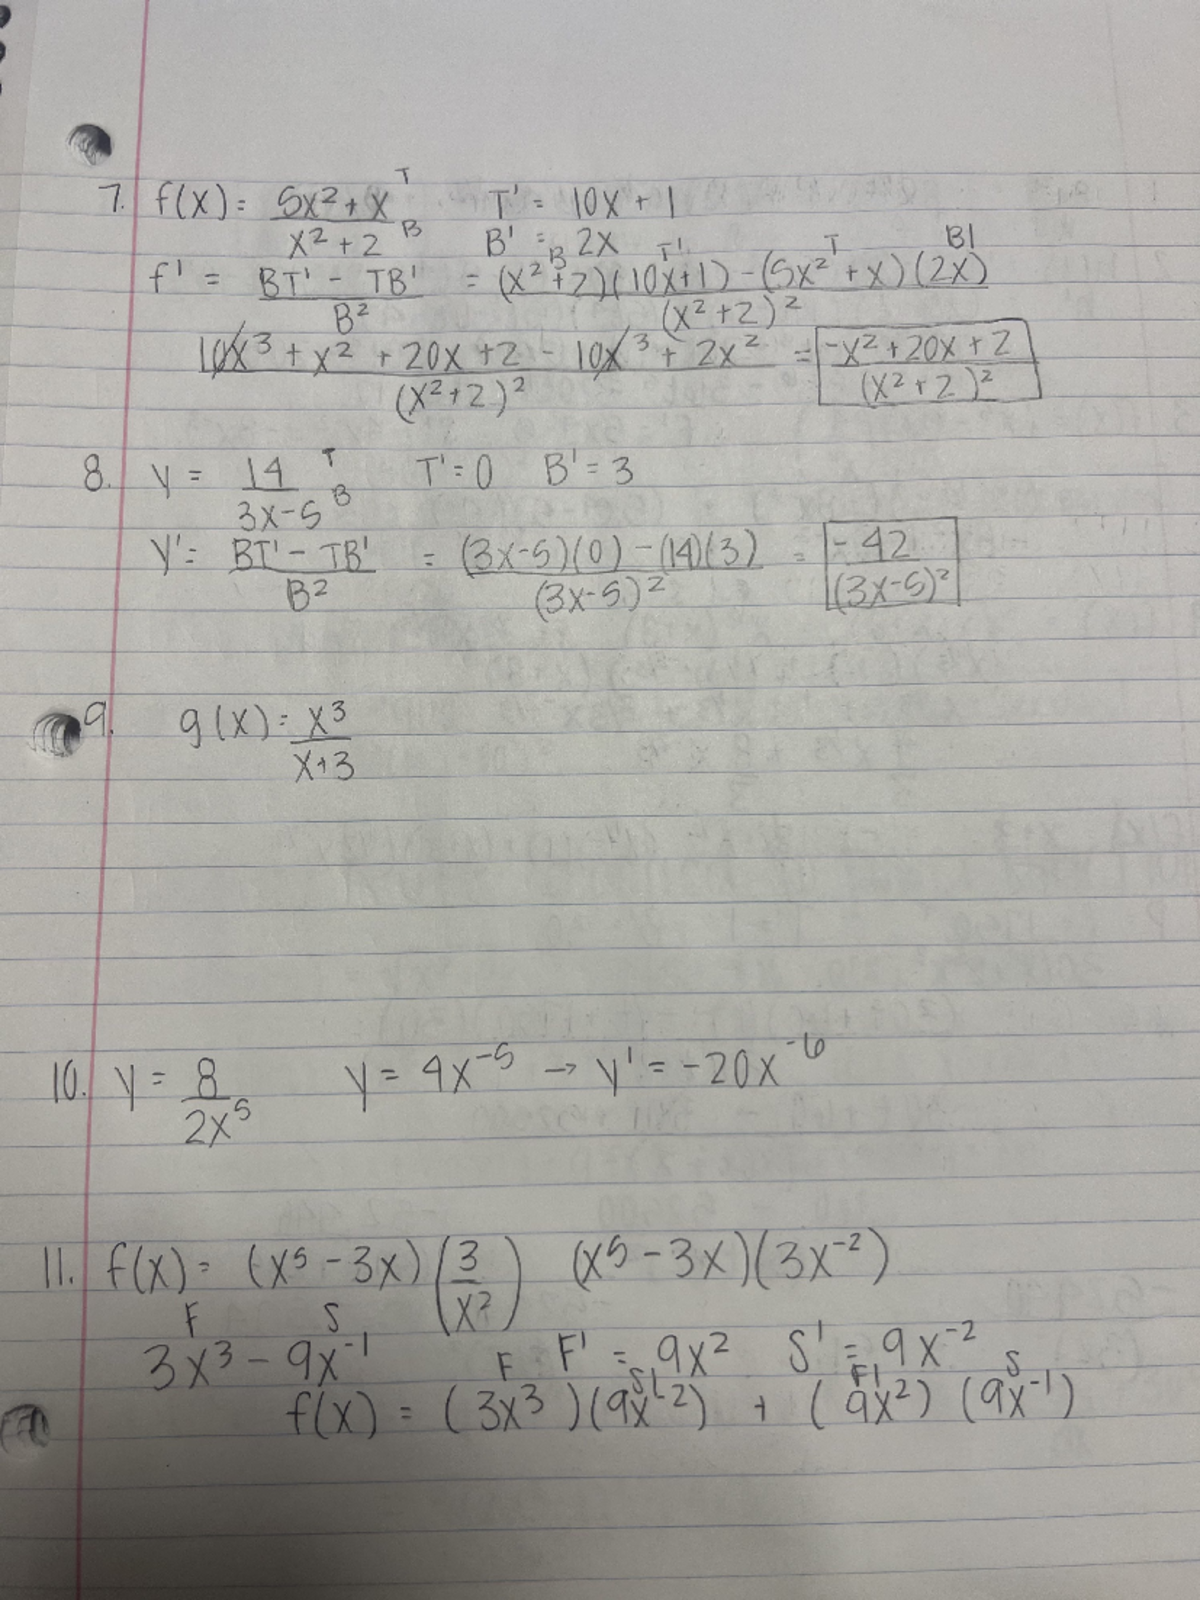 7. f(x) = (5x² + x)/(x² + 2) T B T' = 10x + 1
B' = 2x
f' = (BT' - TB')/B² = ((x² + 2)(10x+1) - (5x² + x)(2x))/(x² + 2)² B T' T B'
(10x³ + x² + 20x + 2 - 10x³ + 2x²)/(x² + 2)² = (-x² + 20x + 2)/(x² + 2)²
8. y = 14/(3x-5) T B T' = 0 B' = 3
y' = (BT' - TB')/B² = ((3x-5)(0) - (14)(3))/(3x-5)² = -42/(3x-5)²
9. g(x) = x³/(x+3)
10. y = 8/(2x⁵) y = 4x⁻⁵ → y' = -20x⁻⁶
11. f(x) = (x⁵ - 3x)(3/x²) (x⁵ - 3x)(3x⁻²)
F S
3x³ - 9x⁻¹ F' = 9x² S' = 9x⁻²
F S' F' S
f(x) = (3x³)(9x⁻²) + (9x²)(9x⁻¹)